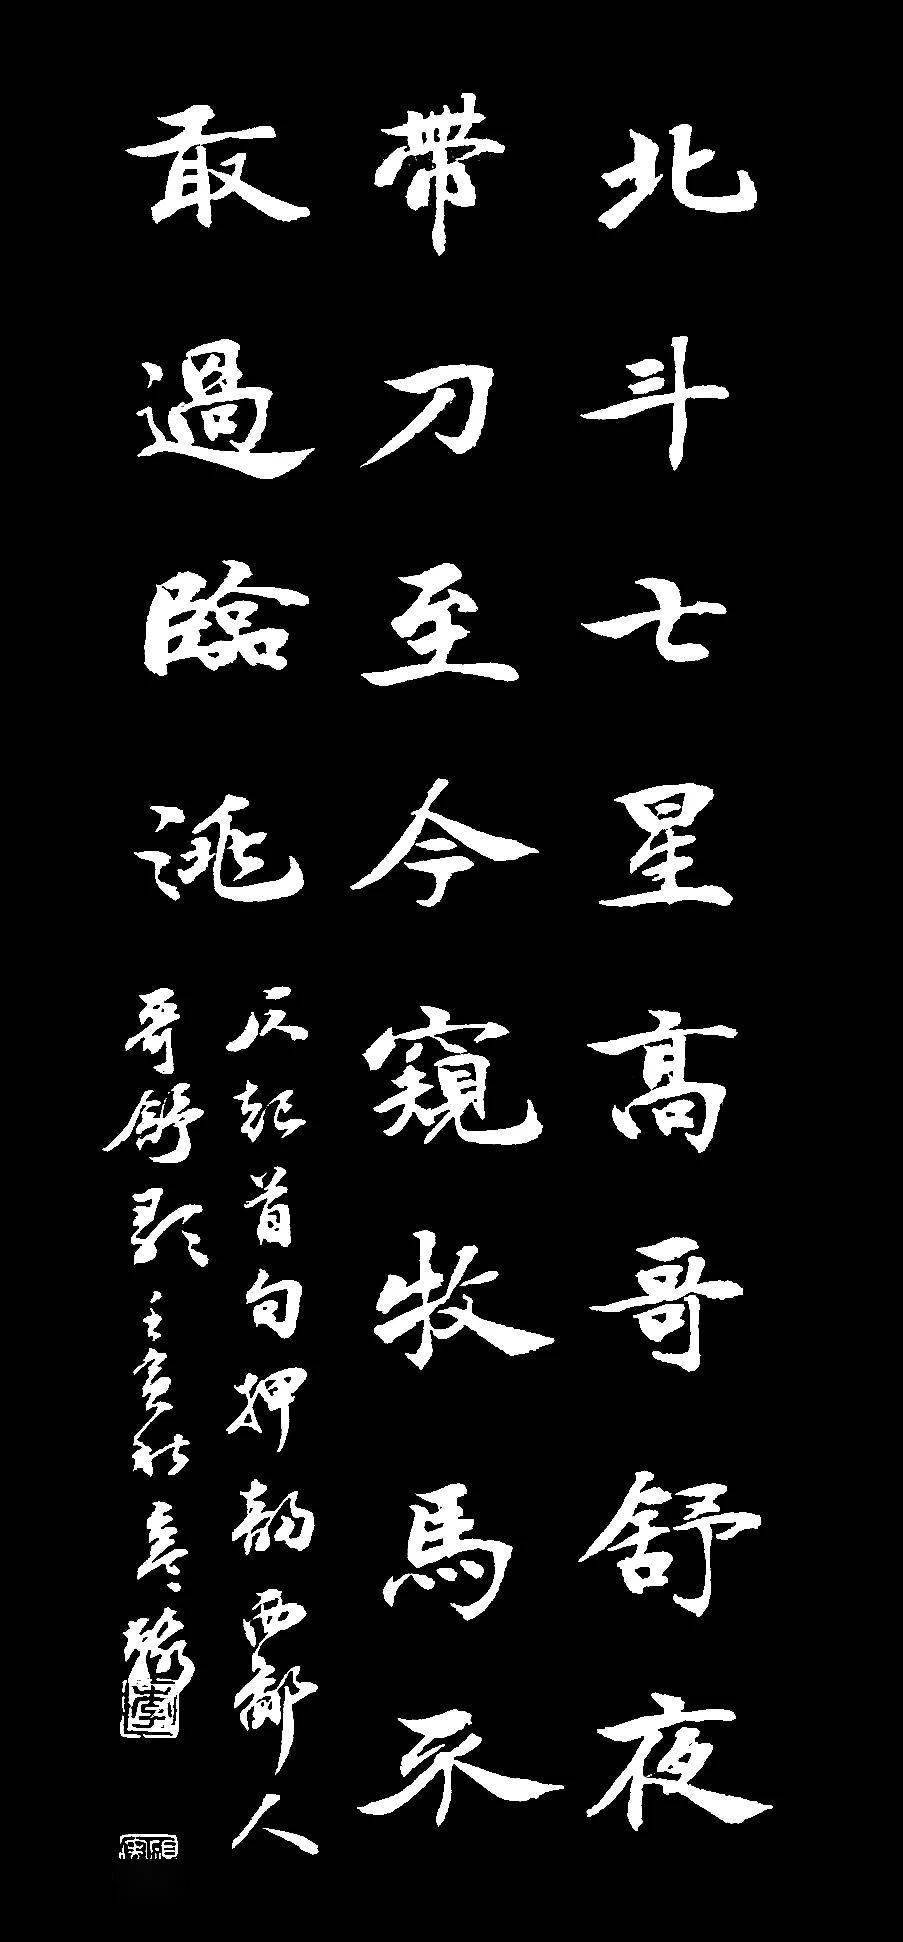 北斗七星高哥舒夜
帶刀至今窺牧馬不
敢過臨洮
仄起首句押韵西鄙人
哥舒歌壬寅秋